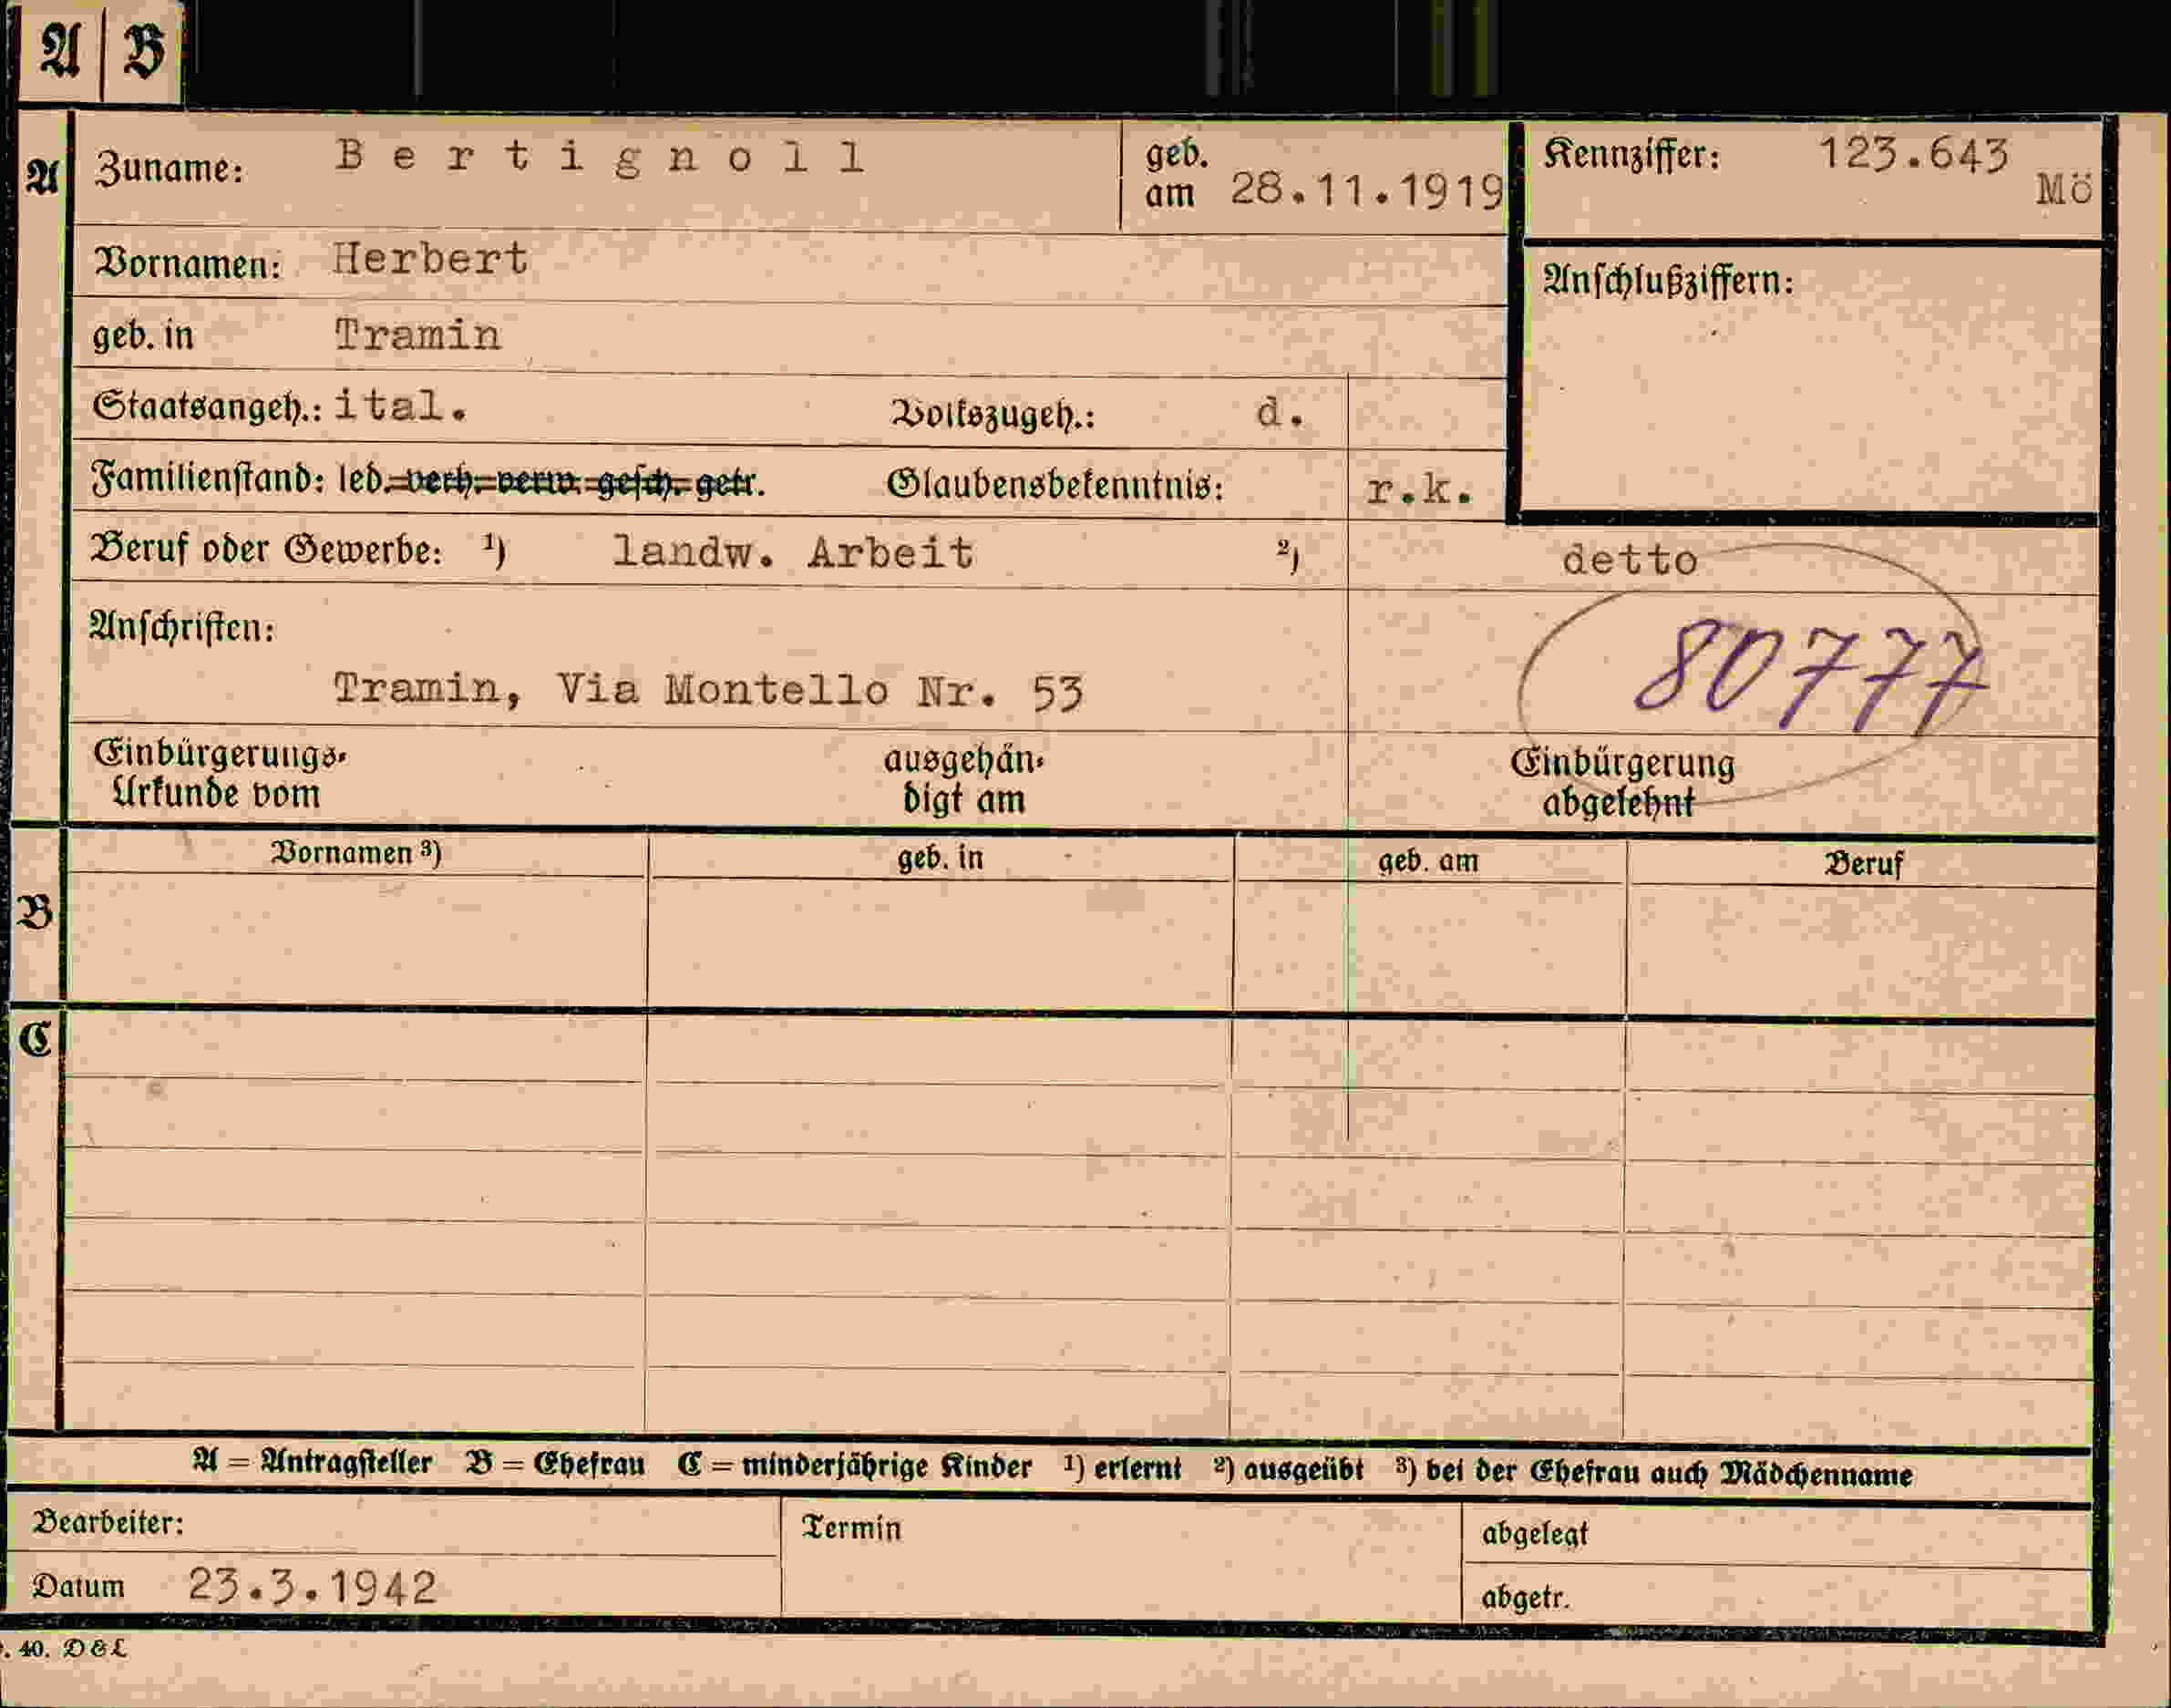 A B
A Zuname: Bertignoll geb. am 28.11.1919 Kennziffer: 123.643 Mö
Vornamen: Herbert Anschlußziffern:
geb. in Tramin
Staatsangeh.: ital. Volkszugeh.: d.
Familienstand: led. verh. verw. gesch. getr. Glaubensbekenntnis: r.k.
Beruf oder Gewerbe: 1) landw. Arbeit 2) detto
Anschriften:
80777
Tramin, Via Montello Nr. 53
Einbürgerungs-
Urkunde vom
ausgehän-
digt am
Einbürgerung
abgelehnt
B Vornamen 3) geb. in geb. am Beruf
C
A = Antragsteller B = Ehefrau C = minderjährige Kinder 1) erlernt 2) ausgeübt 3) bei der Ehefrau auch Mädchenname
Bearbeiter: Termin abgelegt
Datum 23.3.1942 abgetr.
. 40. D&L